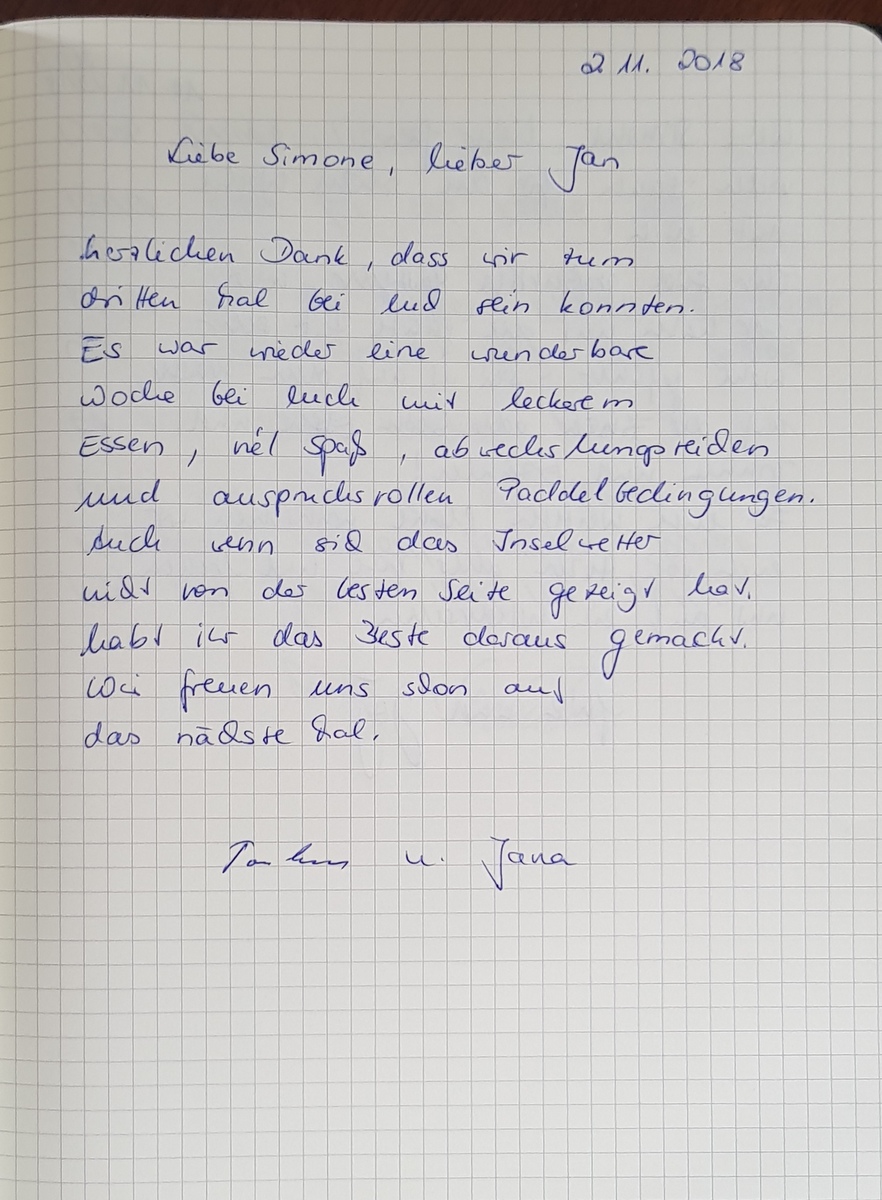 2 11. 2018
Liebe Simone, lieber Jan
herzlichen Dank, dass wir zum
dritten Mal bei Euch sein konnten.
Es war wieder eine wunderbare
Woche bei Euch mit leckerem
Essen, viel Spaß, abwechslungsreichen
und anspruchsvollen Paddelbedingungen.
Auch wenn sich das Inselwetter
nicht von der besten Seite gezeigt hat,
habt ihr das Beste daraus gemacht.
Wir freuen uns schon auf
das nächste Mal.
u. Jana